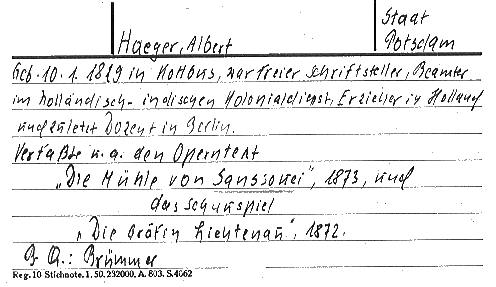 Haeger, Albert
Staat
Potsdam
Geb. 10.1.1829 in Kottbus, war freier Schriftsteller, Beamter
im holländisch-indischen Kolonialdienst, Erzieher in Holland
und zuletzt Dozent in Berlin.
Verfaßte u.a. den Operntext
„Die Mühle von Sanssouci", 1873, und
das Schauspiel
„Die Gräfin Lichtenau", 1872.
B Q.: Brümmer
Reg. 10 Stichnote. 1. 50. 232000. A. 803. S. 4062